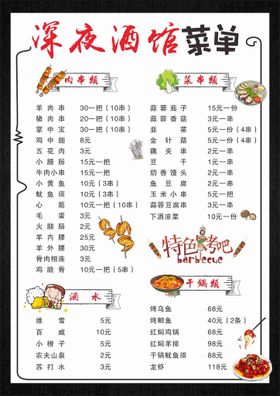 深夜酒馆菜单
肉串类
羊肉串 30一把（10串）
猪肉串 20一把（10串）
掌中宝 30一把（10串）
鸡中翅 8元
五花肉 3元
小腊肠 15元一把
牛肉小串 15元一把
小黄鱼 10元（3串）
鱿鱼须 10元（3串）
心筋 10元一把
毛蛋 3元
火腿肠 2元
羊肉腰 25元
羊外腰 30元
骨肉相连 3元
鸡脆骨 10元一把（5串）
酒水
维雪 5元
百威 10元
小橙子 5元
农夫山泉 2元
苏打水 3元
菜串类
蒜蓉茄子 15元一份
蒜蓉香菇 3元一串
韭菜 5元一份（4串）
金针菇 5元一份（2串）
藕夹 2元一串
豆干 1元一串
奶香馒头 2元一串
鱼豆腐 2元一串
玉米小串 5元一把
蒜蓉豆腐串 3元一串
下酒凉菜 10元一份
特色烤吧
barbecue
干锅类
烤乌鱼 68元
烤鲫鱼 40元（2条）
红焖鸡锅 68元
红焖羊排 98元
干锅鱿鱼须 88元
龙虾 118元